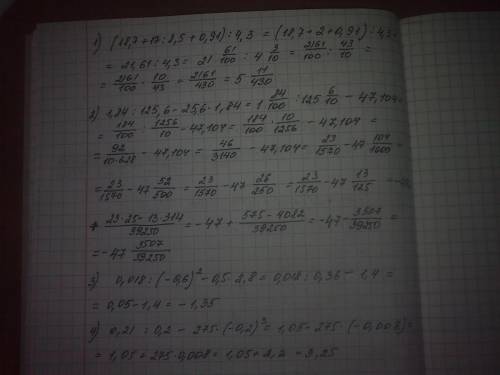 1) (18,7+17:8,5+0,91):4,3 = (18,7+2+0,91):4,3=
= 21,61:4,3= 21 61/100 : 4 3/10 = 2161/100 : 43/10 =
= 2161/100 · 10/43 = 2161/430 = 5 11/430
2) 1,84:125,6-25,6·1,84= 1 84/100 : 125 6/10 - 47,104=
= 184/100 : 1256/10 - 47,104= 184/100 · 10/1256 - 47,104 =
= 92/10·628 - 47,104= 46/3140 - 47,104= 23/1570 - 47 104/1000 =
= 23/1570 - 47 52/500 = 23/1570 - 47 26/250 = 23/1570 - 47 13/125 =
+ 23·25-13·314/39250 = -47 + 575-4082/39250 = -47 - 3507/39250 =
= -47 3507/39250
3) 0,018:(-0,6)² - 0,5·2,8= 0,018:0,36 - 1,4 =
= 0,05-1,4= -1,35
4) 0,21:0,2 - 275·(-0,2)³= 1,05-275·(-0,008)=
= 1,05+275·0,008= 1,05+2,2 = 3,25